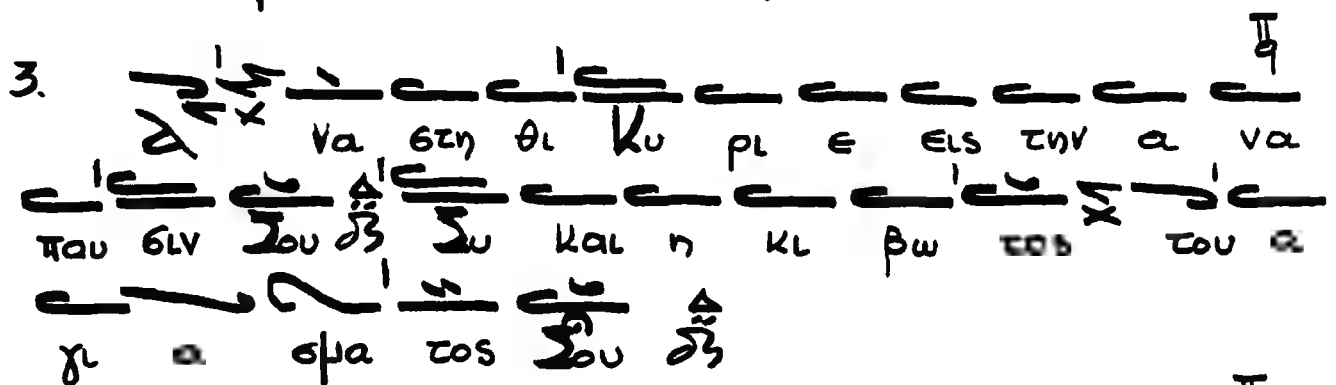 3. Α να στη θι Κυ ρι ε εις την α να
παυ σιν Σου Συ και η κι βω τος του α
γι α σμα τος Σου